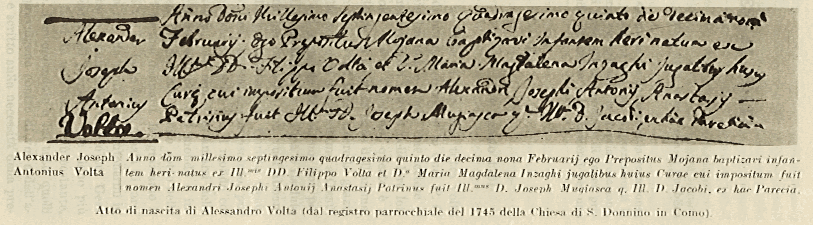 Anno Domi Millesimo Septingentesimo quadragesimo quinto die decima nona
Alexander Februarij ego Prepositus Mojana baptizavi infantem heri natum ex
Joseph Ill.mis DD. Filippo Volta et D. Maria Magdalena Inzaghi jugalibus huius
Antonius Curę cui impositum fuit nomen Alexandri Josephi Antonij Anastasij
Volta Patrinus fuit Ill.mus D. Joseph Mugiasca q. Ill. D. Jacobi, ex hac Parecia
Alexander Joseph Anno dōm millesimo septingesimo quadragesimo quinto die decima nona Februarij ego Prepositus Mojana baptizavi infan-
Antonius Volta tem heri natus ex Ill.mis DD. Filippo Volta et D.a Maria Magdalena Inzaghi jugalibus huius Curae cui impositum fuit
nomen Alexandri Josephi Antonij Anastasij Patrinus fuit Ill.mus D. Joseph Mugiosca q. Ill. D. Jacobi, ex hac Parecia.
Atto di nascita di Alessandro Volta (dal registro parrocchiale del 1745 della Chiesa di S. Donnino in Como).